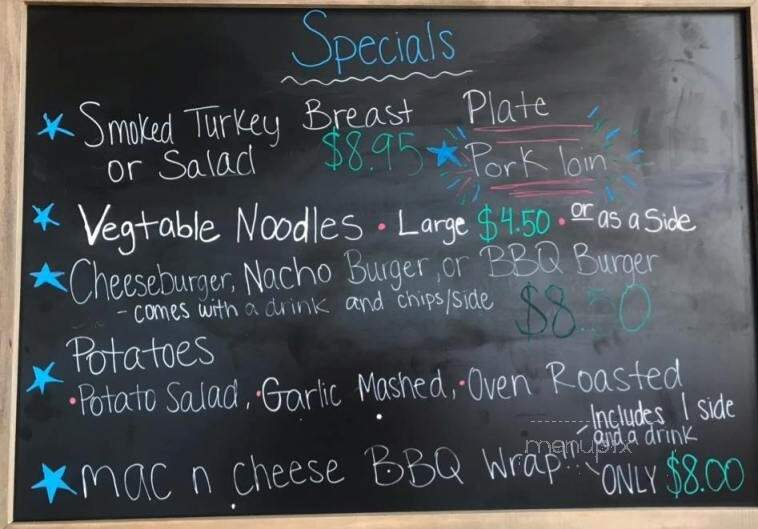 Specials
Smoked Turkey Breast Plate
or Salad $8.95 Pork loin
Vegtable Noodles • Large $4.50 • or as a Side
Cheeseburger, Nacho Burger, or BBQ Burger
- comes with a drink and chips/side $8.50
Potatoes
• Potato Salad, • Garlic Mashed, • Oven Roasted
mac n cheese BBQ Wrap...
Includes 1 side
and a drink
ONLY $8.00
menupix